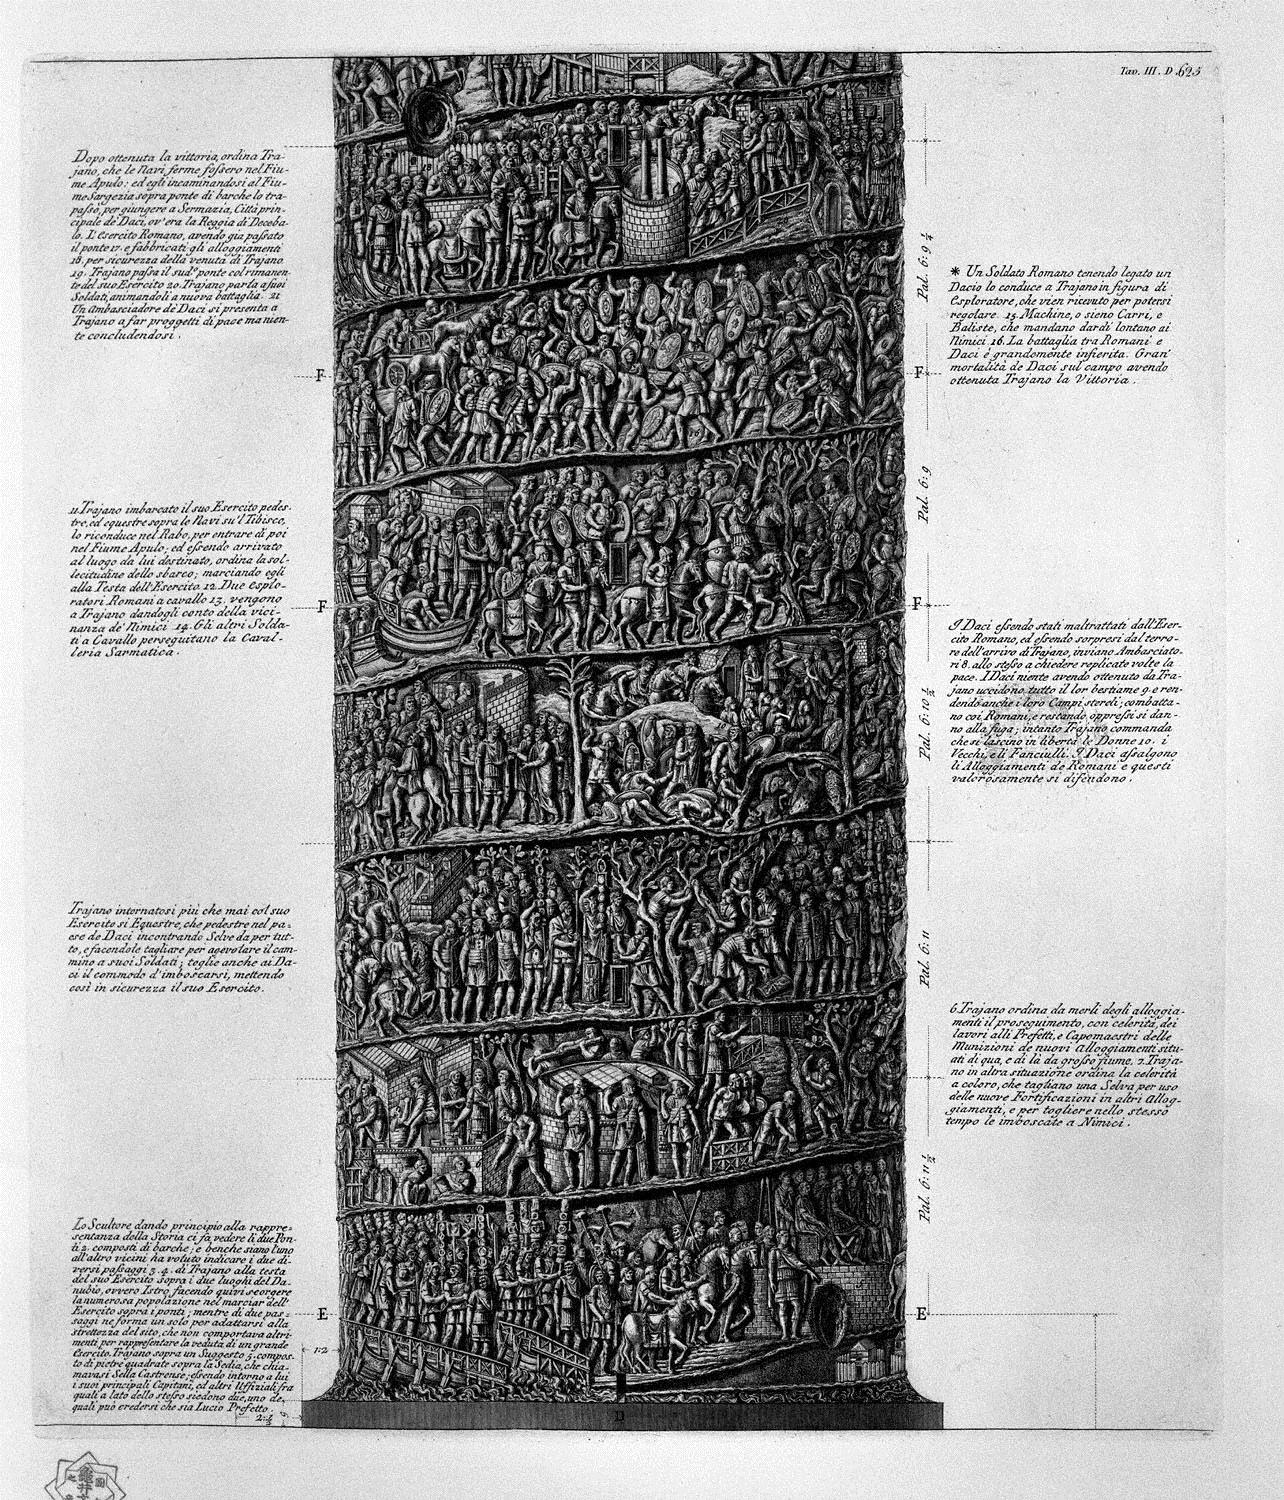 Tav. III. D. 625
Dopo ottenuta la vittoria, ordina Tra-
jano, che le Navi ferme fossero nel Fiu-
me Apulo: ed egli incaminandosi al Fiu-
me Sargezia sopra ponte di barche lo tra-
passò, per giungere a Sermazia, Città prin-
cipale de' Daci, ov' era la Reggia di Deceba-
lo. L' Esercito Romano, avendo già passato
il ponte 17. e fabbricati gli alloggiamenti
18. per sicurezza della venuta di Trajano
19. Trajano passa il sud.º ponte col rimanen-
te del suo Esercito 20. Trajano parla a suoi
Soldati, animandoli a nuova battaglia. 21
Un Ambasciadore de Daci si presenta a
Trajano a far proggetti di pace ma nien-
te concludendosi.
* Un Soldato Romano tenendo legato un
Dacio lo conduce a Trajano in figura di
Esploratore, che vien ricevuto per potersi
regolare. 15. Machine, o sieno Carri, e
Baliste, che mandano dardi lontano ai
Nimici 16. La battaglia tra Romani e
Daci è grandemente infierita. Gran'
mortalità de Daci sul campo avendo
ottenuta Trajano la Vittoria.
Pal. 6:9 1/4
F
F
11. Trajano imbarcato il suo Esercito pedes-
tre, ed equestre sopra le Navi su'l Tibisco,
lo riconduce nel Rabo, per entrare di poi
nel Fiume Apulo; ed essendo arrivato
al luogo da lui destinato, ordina la sol-
lecitudine dello sbarco; marciando egli
alla Testa dell' Esercito. 12. Due Esplo-
ratori Romani a cavallo 13. vengono
a Trajano dandogli conto della vici-
nanza de' Nimici 14. Gli altri Solda-
ti a Cavallo perseguitano la Caval-
leria Sarmatica.
Pal. 6:9
F
F
I Daci essendo stati maltrattati dall' Eser-
cito Romano, ed essendo sorpresi dal terro-
re dell' arrivo di Trajano, inviano Ambasciato-
ri 8. allo stesso a chiedere replicate volte la
pace. I Daci niente avendo ottenuto da Tra-
jano uccidono tutto il lor bestiame 9. e ren-
dendo anche i loro Campi sterili; combatta-
no coi Romani, e restando oppressi si dan-
no alla fuga; intanto Trajano commanda
che si lascino in libertà le Donne 10. i
Vecchi, e li Fanciulli. I Daci assalgono
li Alloggiamenti de Romani e questi
valorosamente si difendono.
Pal. 6:10 1/2
Trajano internatosi più che mai col suo
Esercito sì Equestre, che pedestre nel pa-
ese de Daci incontrando Selve da per tut-
to, e facendole tagliare per agevolare il cam-
mino a suoi Soldati; toglie anche ai Da-
ci il commodo d' imboscarsi, mettendo
così in sicurezza il suo Esercito.
Pal. 6:11
6 Trajano ordina da merli degli alloggia-
menti il proseguimento, con celerità, dei
lavori alli Prefetti, e Capomaestri delle
Munizioni de nuovi Alloggiamenti situ-
ati di qua, e di là da grosso fiume. 7. Traja-
no in altra situazione ordina la celerità
a coloro, che tagliano una Selva per uso
delle nuove Fortificazioni in altri Allog-
giamenti, e per togliere nello stesso
tempo le imboscate a Nimici.
Pal. 6:11 1/2
Lo Scultore dando principio alla rappre-
sentanza della Storia ci fa vedere li due Pon-
ti 2. composti di barche; e benche siano l'uno
all' altro vicini ha voluto indicare i due di-
versi passaggi 3. 4. di Trajano alla testa
del suo Esercito sopra i due luoghi del Da-
nubio, ovvero Istro, facendo quivi scorgere
la numerosa popolazione nel marciar dell'
Esercito sopra i ponti; mentre di due pas-
saggi ne forma un solo per adattarsi alla
strettezza del sito, che non comportava altri-
menti per rappresentare la veduta di un grande
Esercito. Trajano sopra un Suggesto 5. compos-
to di pietre quadrate sopra la Sedia, che chia-
mavasi Sella Castrense; essendo intorno a lui
i suoi principali Capitani, ed altri Uffiziali fra
quali a lato dello stesso siedono due, uno de-
quali può credersi che sia Lucio Prefetto.
E
E
1:2
2:1/2
D